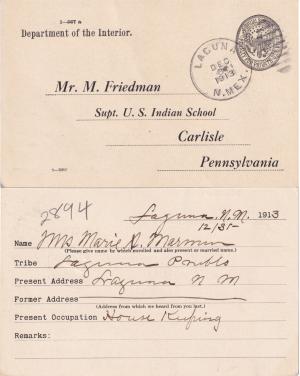 1-567 a
Department of the Interior.
LAGUNA
DEC
1913
N. MEX.
Mr. M. Friedman
Supt. U. S. Indian School
Carlisle
Pennsylvania
2894
Laguna, N.M. 1913
12/31-
Name Mrs Marie R. Marmon
(Please give name by which enrolled and also present or married name.)
Tribe Laguna Pueblo
Present Address Laguna N M
Former Address
(Address from which we heard from you last.)
Present Occupation House Keeping
Remarks: